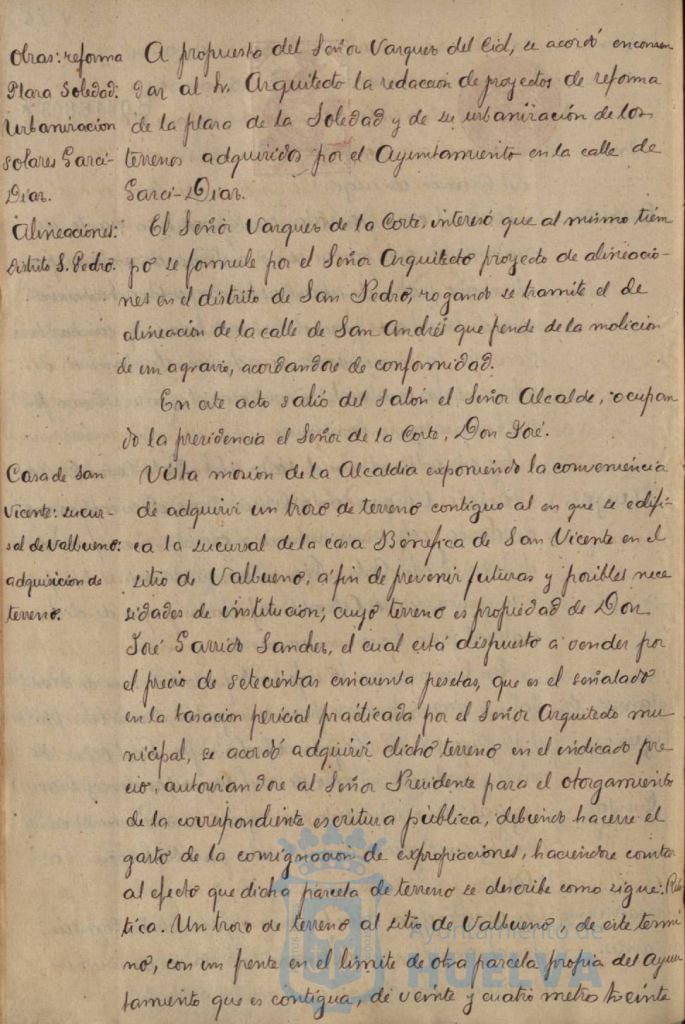 Obras: reforma
Plaza Soledad:
Urbanizacion
solares Garci-
Diaz.
A propuesta del Señor Vazquez del Cid, se acordó encomen
dar al Sr. Arquitecto la redaccion de proyectos de reforma
de la plaza de la Soledad y de su urbanización de los
terrenos adquiridos por el Ayuntamiento en la calle de
Garci-Diaz.
Alineaciones:
Distrito S. Pedro.
El Señor Vazquez de la Corte, interesó que al mismo tiem
po se formule por el Señor Arquitecto proyecto de alineacio-
nes en el distrito de San Pedro, rogando se tramite el de
alineación de la calle de San Andrés que pende de la
de un agravio, acordandose de conformidad.
En este acto salió del salón el Señor Alcalde, ocupan
do la presidencia el Señor de la Corte, Don José.
Casa de San
Vicente: sucur-
sal de Valbueno:
adquisicion de
terreno.
Vista mocion de la Alcaldia exponiendo la conveniencia
de adquirir un trozo de terreno contiguo al en que se edifi-
ca la sucursal de la casa Benefica de San Vicente en el
sitio de Valbueno, a fin de prevenir futuras y posibles nece
sidades de institucion; cuyo terreno es propiedad de Don
José Garrido Sanchez, el cual está dispuesto a vender por
el precio de setecientas cincuenta pesetas, que es el señalado
en la tasacion pericial practicada por el Señor Arquitecto mu
nicipal, se acordó adquirir dicho terreno en el indicado pre
cio, autorizandose al Señor Presidente para el otorgamiento
de la correspondiente escritura pública, debiendo hacerse el
gasto de la consignacion de expropiaciones, haciendose constar
al efecto que dicha parcela de terreno se describe como sigue: Rús
tica. Un trozo de terreno al sitio de Valbueno, de este termi
no, con un frente en el limite de otra parcela propia del Ayun
tamiento que es contigua, de veinte y cuatro metros treinta
Ayuntamiento de
HUELVA